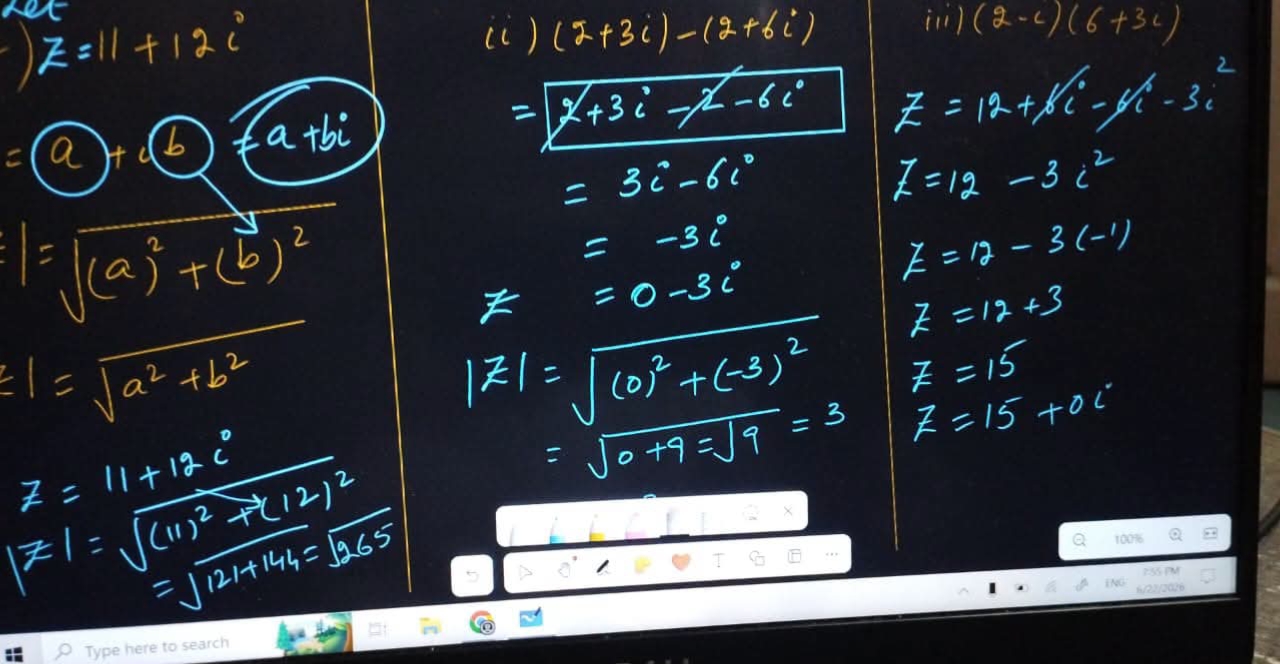 Let
) Z = 11 + 12i
= a + ib = a + bi
| = √(a)² + (b)²
| = √a² + b²
Z = 11 + 12i
|Z| = √(11)² + (12)²
= √121 + 144 = √265
ii) (2+3i) – (2+6i)
= 2 + 3i – 2 – 6i
= 3i – 6i
= -3i
Z = 0 – 3i
|Z| = √(0)² + (-3)²
= √0 + 9 = √9 = 3
iii) (2-i)(6+3i)
Z = 12 + 6i – 6i – 3i²
Z = 12 – 3i²
Z = 12 – 3(-1)
Z = 12 + 3
Z = 15
Z = 15 + 0i
T
100%
Type here to search
ENG
7:55 PM
6/22/2026